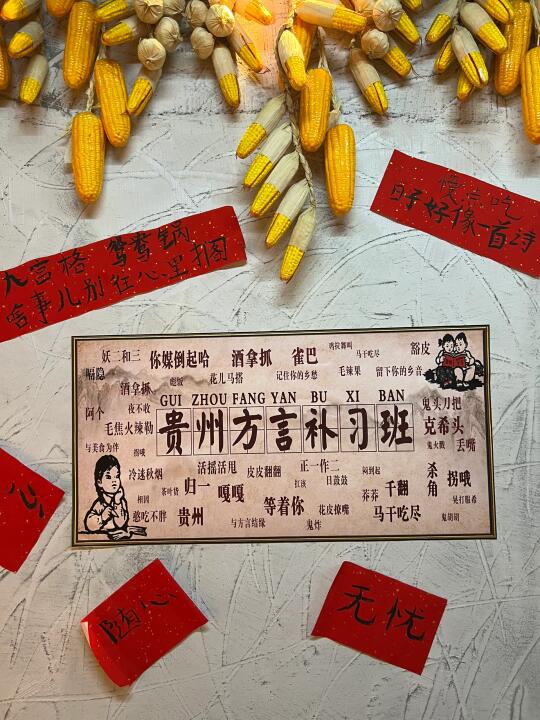 慢点吃
日子好像一首诗
九宫格 鸳鸯锅
啥事儿别往心里搁
妖二和三 你媒倒起哈 酒拿抓 雀巴 鸡拉舞叫 马干吃尽 豁皮
嗝隐 酒拿抓 彪饭 花儿马搭 记住你的乡愁 毛辣果 留下你的乡音
GUI ZHOU FANG YAN BU XI BAN
贵州方言补习班
阿个 夜不收
毛焦火辣勒
与美食为伴 拐哦
鬼头刀把
克希头
鬼火戳 丢嘴
冷速秋烟 活摇活甩 皮皮翻翻 正一作二 闷到起 杀角 拐哦
相因 茶叶货 归一 嘎嘎 扛孩 日鼓鼓 莽莽 千翻 晃打服希
憨吃不胖 贵州 与方言结缘 等着你 鬼炸 花皮撩嘴 马干吃尽 鬼胡胡
心
随心
无忧